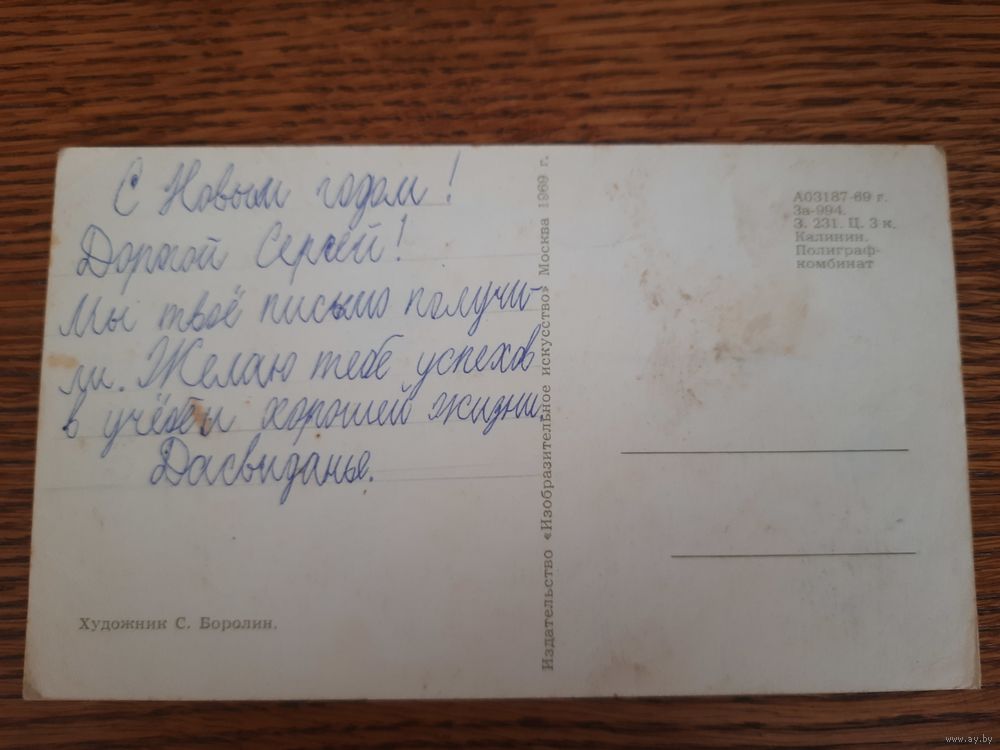 С Новым годом!
Дорогой Сергей!
Мы твоё письмо получи-
ли. Желаю тебе успехов
в учёбе и хорошей жизни.
Дасвиданье.
Художник С. Боролин.
Издательство «Изобразительное искусство» Москва 1969 г.
А03187-69 г.
Зв-994.
З. 231. Ц. 3 к.
Калинин.
Полиграф-
комбинат
www.ay.by